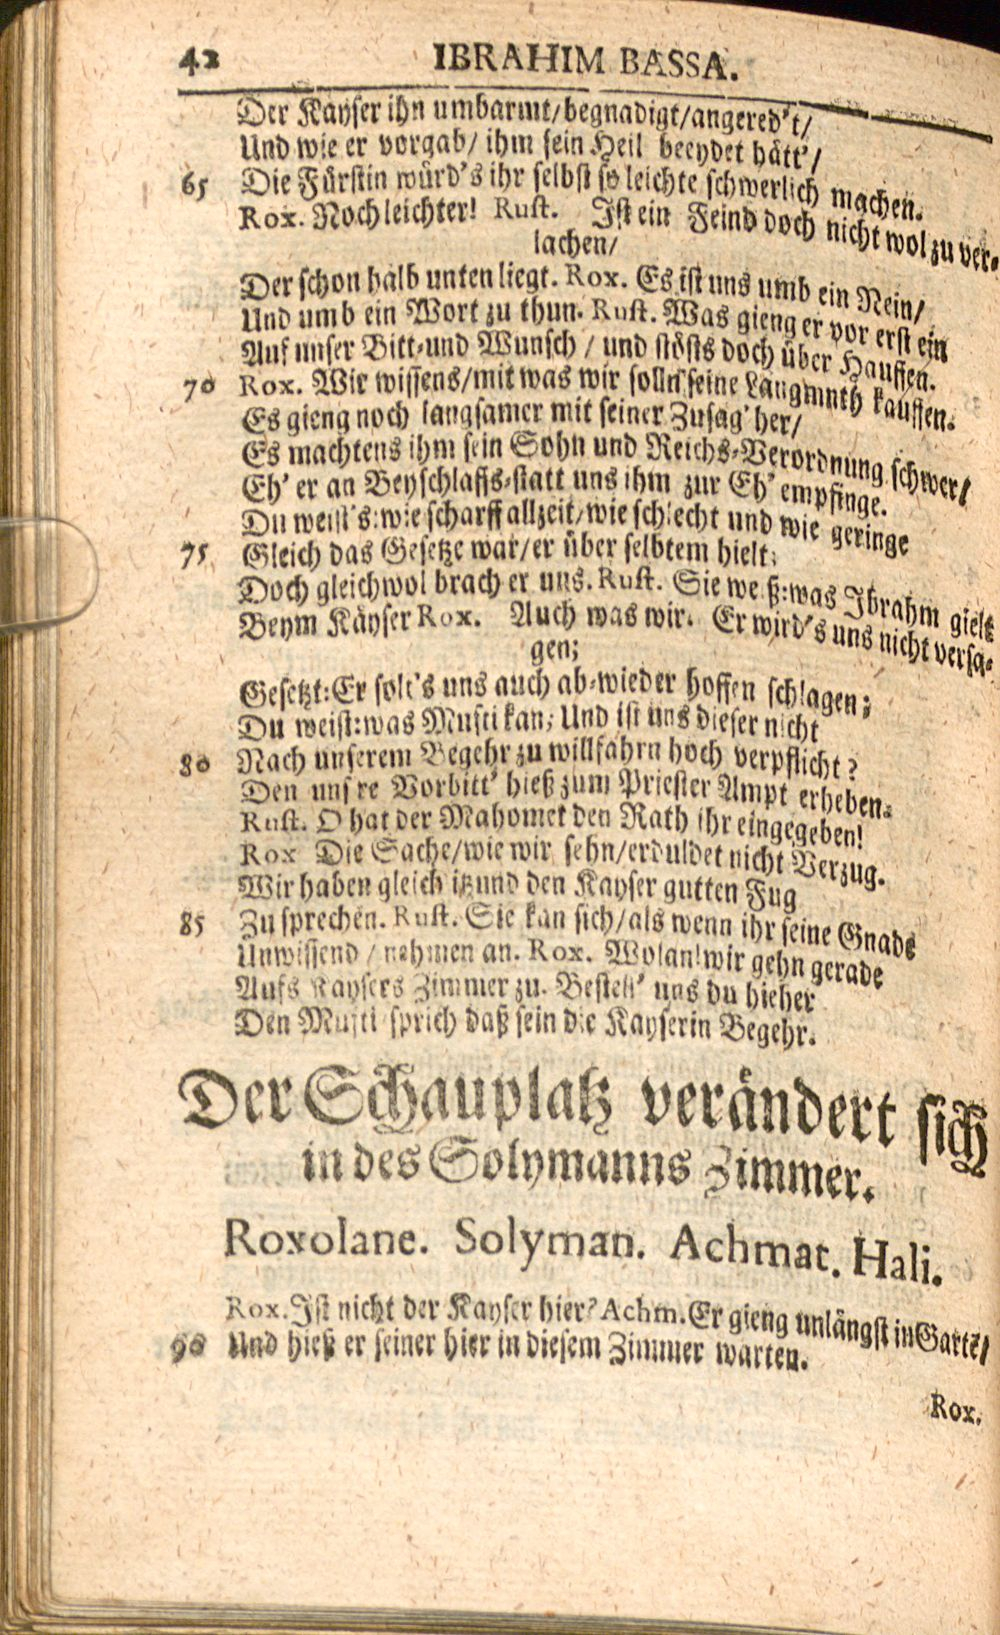 42 IBRAHIM BASSA.
Der Kayser ihn umbarmt/begnadigt/angered't/
Und wie er vorgab/ ihm sein Heil beeydet hätt'/
65 Die Fürstin würd's ihr selbst so leichte schwerlich machen.
Rox. Noch leichter! Rust. Ist ein Feind doch nicht wol zu ver-
lachen/
Der schon halb unten liegt. Rox. Es ist uns umb ein Nein/
Und umb ein Wort zu thun. Rust. Was gieng er vor erst ein
Auf unser Bitt-und Wunsch / und stösts doch über Hauffen.
70 Rox. Wir wissens/mit was wir solln seine Langmuth kauffen.
Es gieng noch langsamer mit seiner Zusag' her/
Es machtens ihm sein Sohn und Reichs-Verordnung schwer/
Eh' er an Beyschlaffs-statt uns ihm zur Eh' empfinge.
Du weist's: wie scharff allzeit/wie schlecht und wie geringe
75 Gleich das Gesetze war/er über selbtem hielt;
Doch gleichwol brach er uns. Rust. Sie weß: was Ibrahm gielt
Beym Käyser Rox. Auch was wir. Er wird's uns nicht versa-
gen;
Gesetzt: Er solt's uns auch ab-wieder hoffen schlagen;
Du weist: was Mufti kan; Und ist uns dieser nicht
80 Nach unserem Begehr zu willfahrn hoch verpflicht?
Den unsre Vorbitt' hieß zum Priester Ampt erheben.
Rust. O hat der Mahomet den Rath ihr eingegeben!
Rox Die Sache/wie wir sehn/erduldet nicht Verzug.
Wir haben gleich itzund den Kayser gutten Fug
85 Zu sprechen. Rust. Sie kan sich/als wenn ihr seine Gnade
Unwissend / nehmen an. Rox. Wolan! wir gehn gerade
Aufs Kaysers Zimmer zu. Bestell' uns du hieher
Den Mufti sprich daß sein die Kayserin Begehr.
Der Schauplatz verändert sich
in des Solymanns Zimmer.
Roxolane. Solyman. Achmat. Hali.
Rox. Ist nicht der Kayser hier? Achm. Er gieng unlängst in Gartē/
90 Und hieß er seiner hier in diesem Zimmer warten.
Rox.